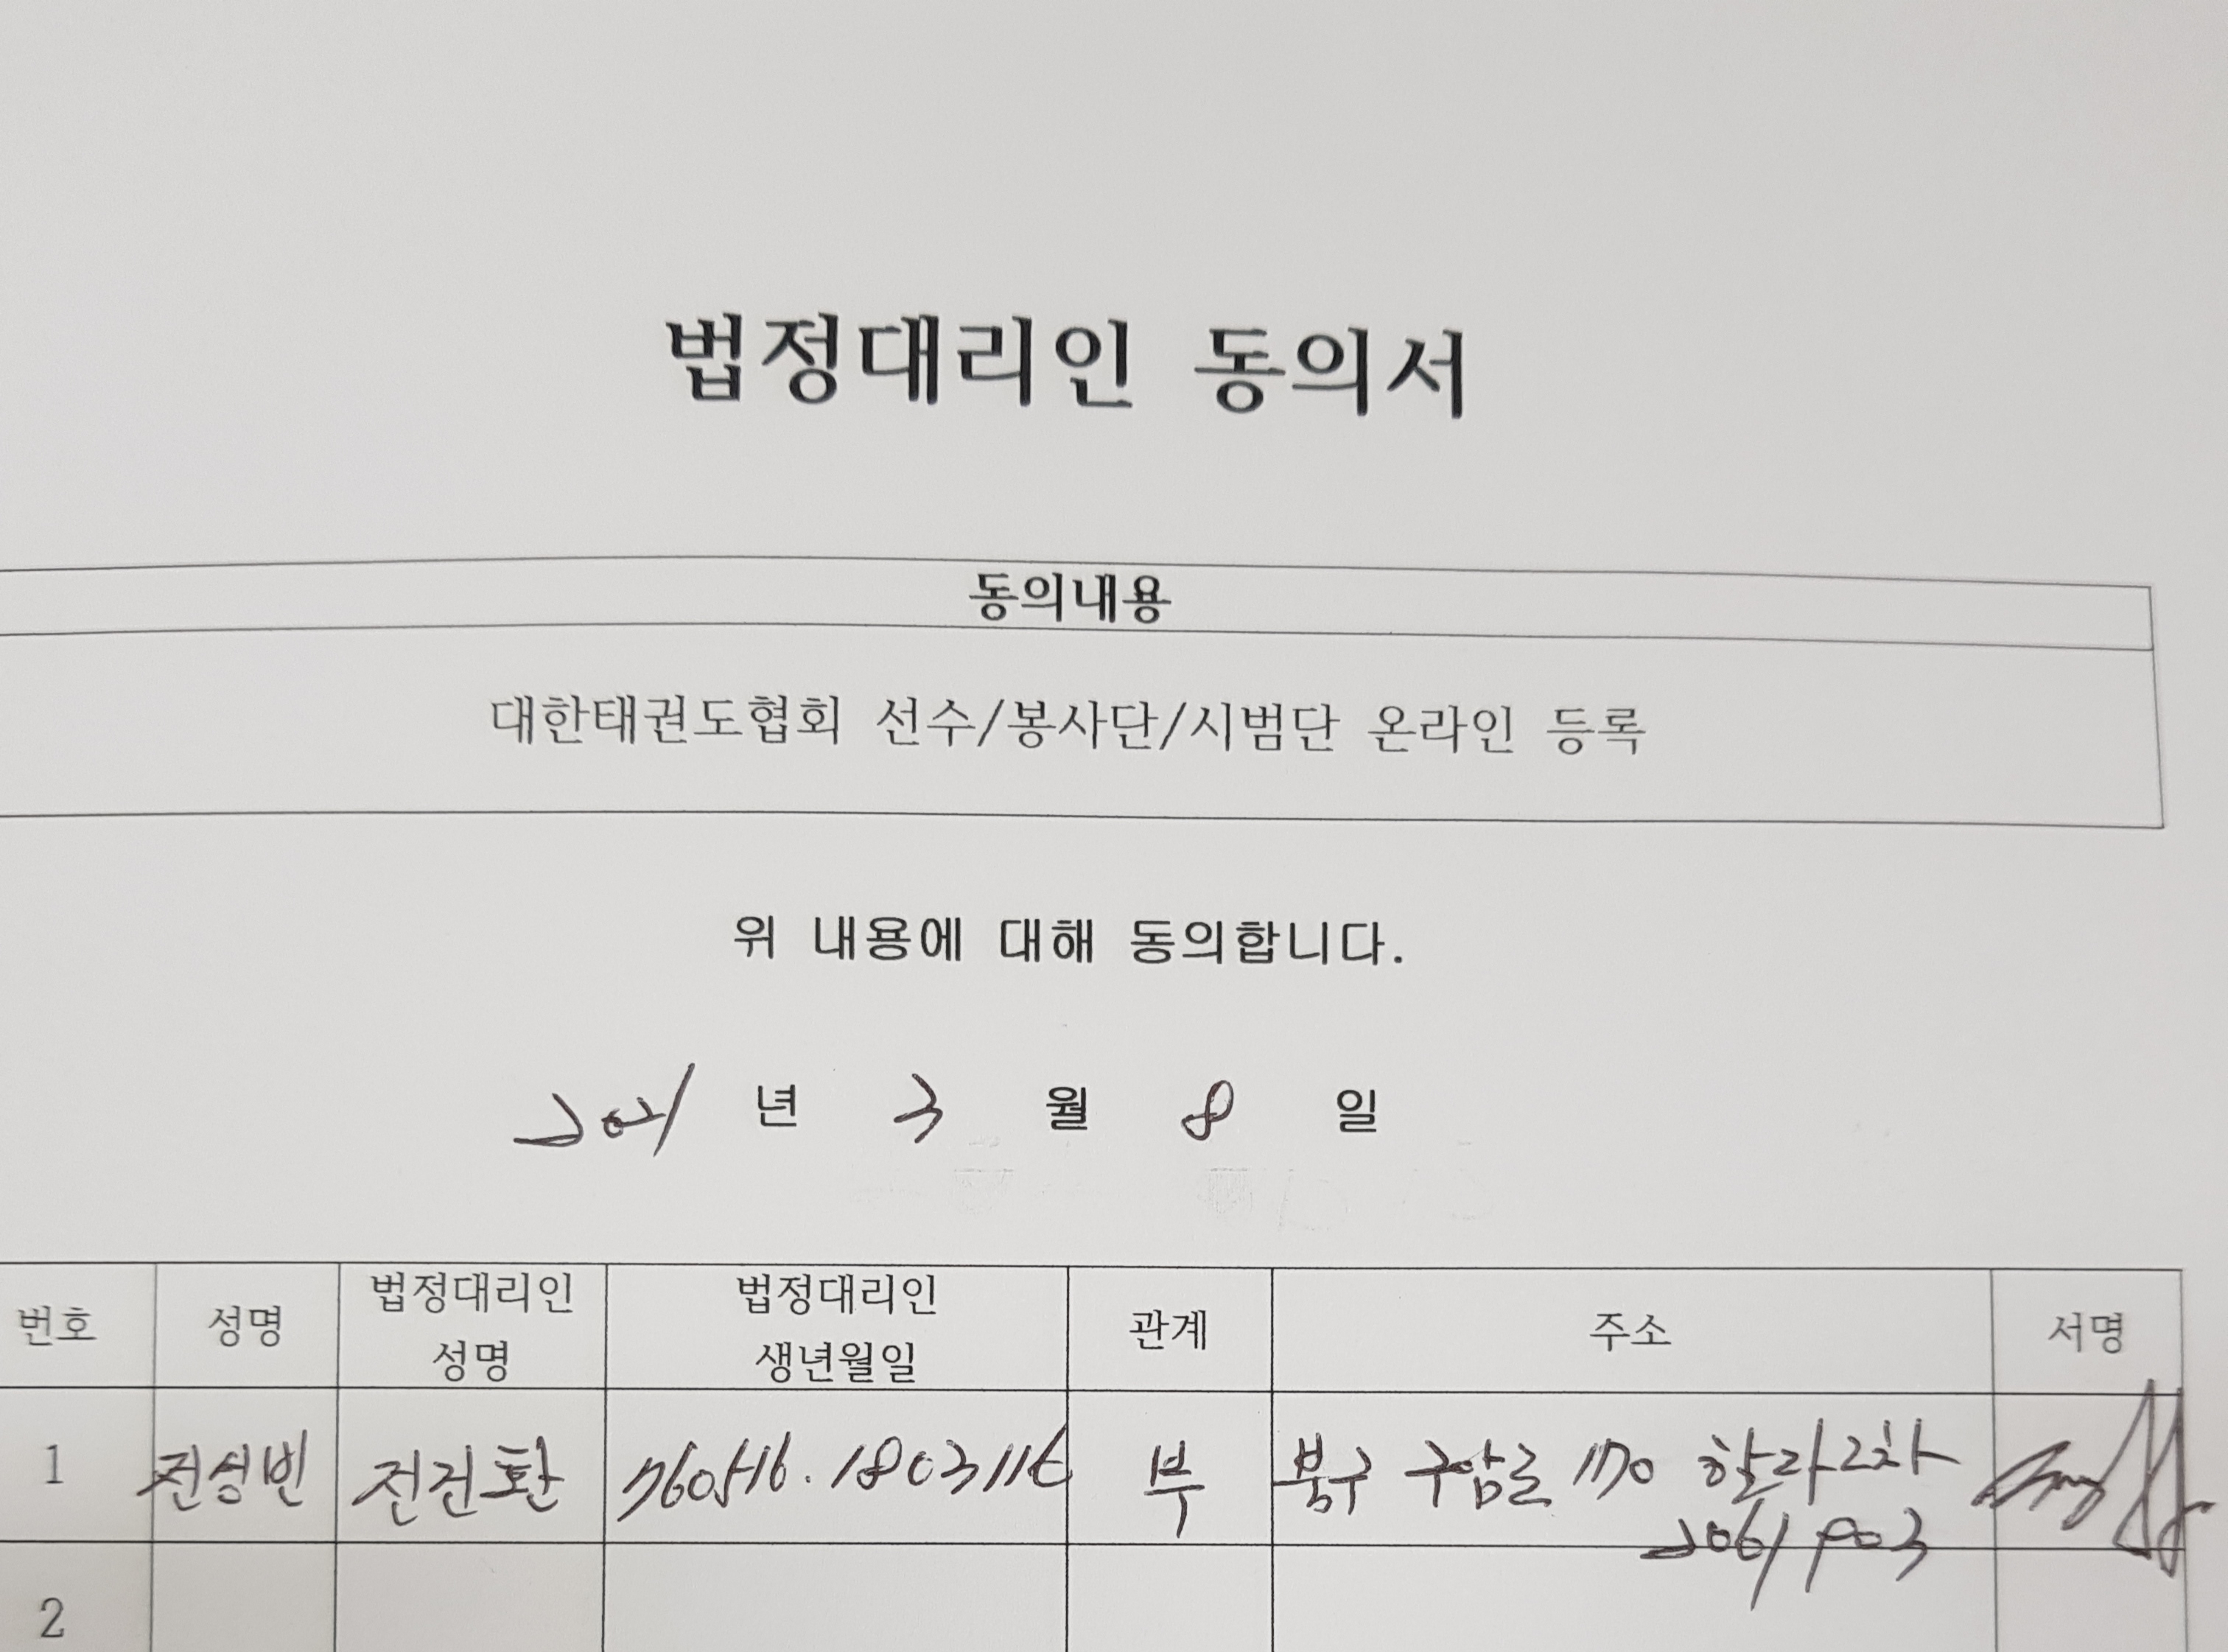 법정대리인 동의서
동의내용
대한태권도협회 선수/봉사단/시범단 온라인 등록
위 내용에 대해 동의합니다.
2021 년 3 월 8 일
번호 성명 법정대리인 성명 법정대리인 생년월일 관계 주소 서명
1 전성빈 전건환 부 북구 구암로 170 한라2차
903
2